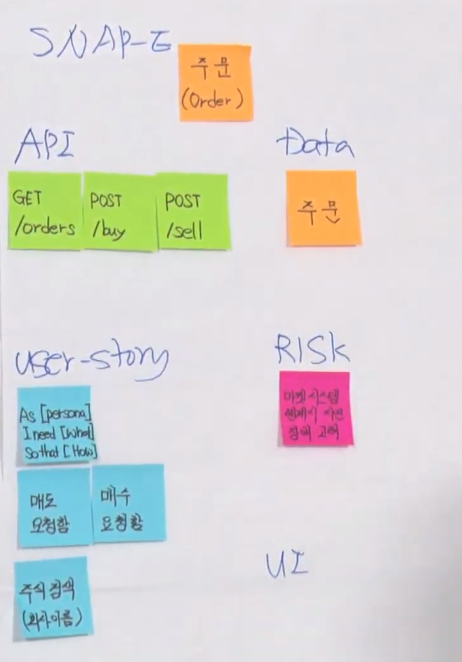 SNAP-E
주문
(Order)
API
GET
/orders
POST
/buy
POST
/sell
Data
주문
user-story
As [persona]
I need [what]
So that [How]
매도
요청함
매수
요청함
주식 검색
(회사이름)
RISK
마켓 시스템
정책 고려
UI